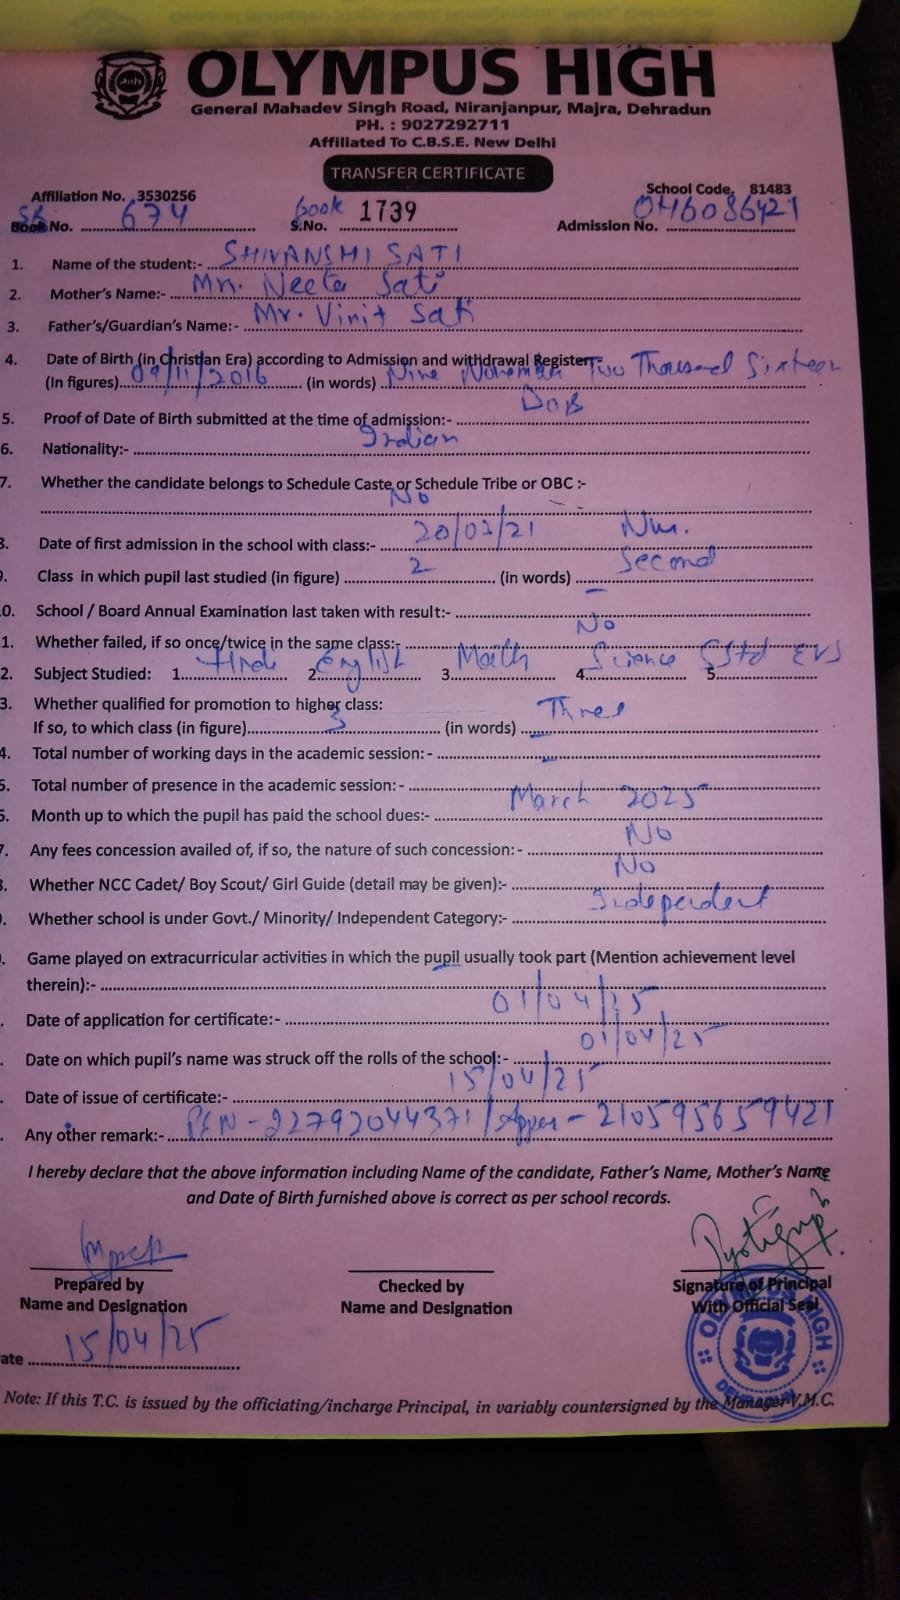 OLYMPUS HIGH
General Mahadev Singh Road, Niranjanpur, Majra, Dehradun
PH. : 9027292711
Affiliated To C.B.S.E. New Delhi
TRANSFER CERTIFICATE
Affiliation No. 3530256 School Code. 81483
SR Book No. 674 Book S.No. 1739 Admission No. OH6086421
1. Name of the student:- SHIVANSHI SATI
2. Mother's Name:- Mrs. Neeta Sati
3. Father's/Guardian's Name:- Mr. Vinit Sati
4. Date of Birth (in Christian Era) according to Admission and withdrawal Register:-
(In figures) 09/11/2016 (in words) Nine November Two Thousand Sixteen
5. Proof of Date of Birth submitted at the time of admission:- DOB
6. Nationality:- Indian
7. Whether the candidate belongs to Schedule Caste or Schedule Tribe or OBC :-
No
8. Date of first admission in the school with class:- 20/03/21 Nur.
9. Class in which pupil last studied (in figure) 2 (in words) Second
0. School / Board Annual Examination last taken with result:- –
1. Whether failed, if so once/twice in the same class:- No
2. Subject Studied: 1. Hindi 2. English 3. Math 4. Science 5. SStd EVS
3. Whether qualified for promotion to higher class:
If so, to which class (in figure) 3 (in words) Three
4. Total number of working days in the academic session: - –
5. Total number of presence in the academic session: - –
6. Month up to which the pupil has paid the school dues:- March 2025
7. Any fees concession availed of, if so, the nature of such concession: - No
8. Whether NCC Cadet/ Boy Scout/ Girl Guide (detail may be given):- No
9. Whether school is under Govt./ Minority/ Independent Category:- Independent
. Game played on extracurricular activities in which the pupil usually took part (Mention achievement level
therein):-
. Date of application for certificate:- 01/04/25
. Date on which pupil's name was struck off the rolls of the school:- 01/04/25
. Date of issue of certificate:- 15/04/25
. Any other remark:- PEN - 22792044371 / Apper - 210595659421
I hereby declare that the above information including Name of the candidate, Father's Name, Mother's Name
and Date of Birth furnished above is correct as per school records.
Prepared by Checked by Signature of Principal
Name and Designation Name and Designation With Official Seal
OLYMPUS HIGH DEHRADUN
ate 15/04/25
Note: If this T.C. is issued by the officiating/incharge Principal, in variably countersigned by the Manager V.M.C.